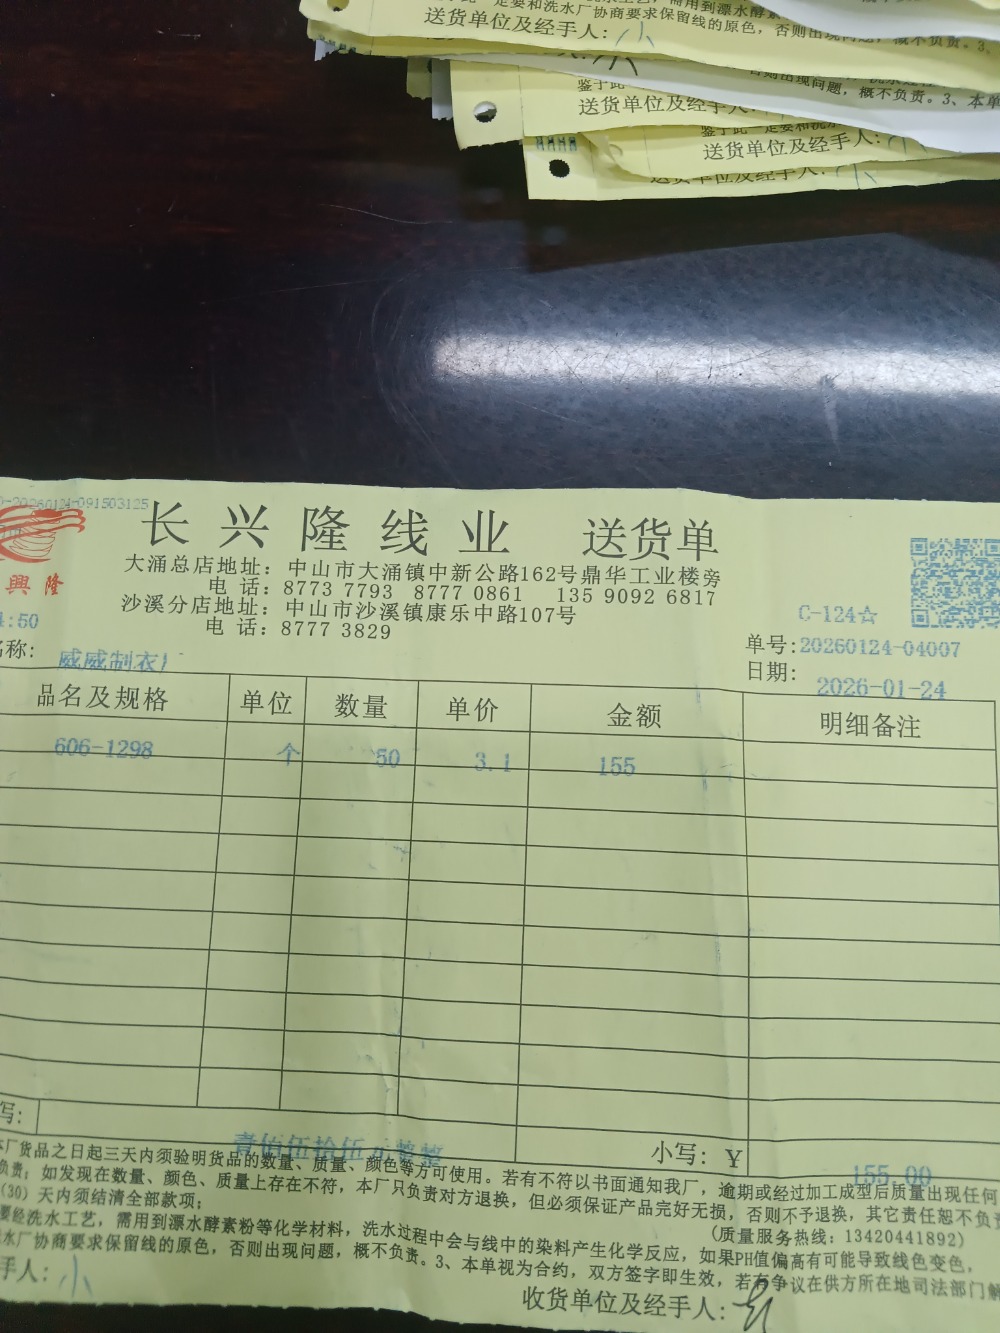 送货单位及经手人: 小
概不负责。3、本单
送货单位及经手人
送货单位及经手人:
-20260124-091503125
长兴隆线业 送货单
興隆
大涌总店地址: 中山市大涌镇中新公路162号鼎华工业楼旁
电 话: 8773 7793 8777 0861 135 9092 6817
沙溪分店地址: 中山市沙溪镇康乐中路107号
电 话: 8777 3829
:50
C-124☆
单号:20260124-04007
名称: 威威制衣厂
日期: 2026-01-24
品名及规格 单位 数量 单价 金额 明细备注
606-1298 个 50 3.1 155
写: 壹佰伍拾伍元整整 小写: ¥ 155.00
本厂货品之日起三天内须验明货品的数量、质量、颜色等方可使用。若有不符以书面通知我厂, 逾期或经过加工成型后质量出现任何
负责; 如发现在数量、颜色、质量上存在不符, 本厂只负责对方退换, 但必须保证产品完好无损, 否则不予退换, 其它责任恕不负责
(30) 天内须结清全部款项; (质量服务热线: 13420441892)
要经洗水工艺, 需用到漂水酵素粉等化学材料, 洗水过程中会与线中的染料产生化学反应, 如果PH值偏高有可能导致线色变色,
水厂协商要求保留线的原色, 否则出现问题, 概不负责。3、本单视为合约, 双方签字即生效, 若有争议在供方所在地司法部门解
手人: 小
收货单位及经手人: